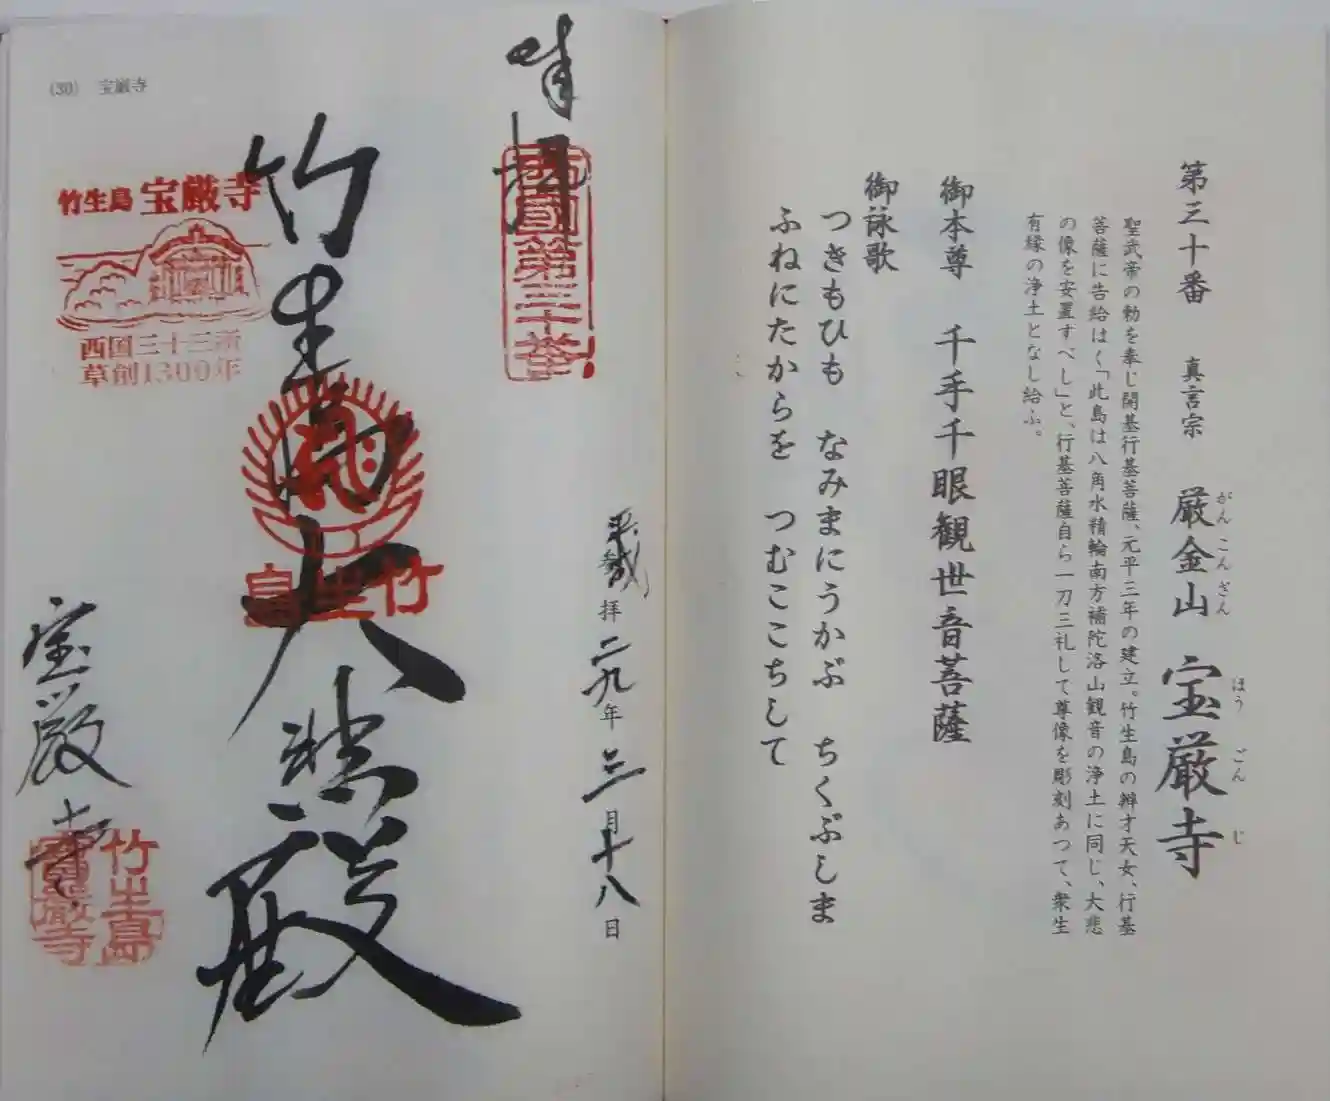 第三十番 真言宗 厳金山 宝厳寺
がんこんざん ほうごんじ
聖武帝の勅を奉じ開基行基菩薩、元平三年の建立。竹生島の辨才天女、行基
菩薩に告給はく「此島は八角水精輪南方補陀洛山観音の浄土に同じ、大悲
の像を安置すべし」と、行基菩薩自ら一刀三礼して尊像を彫刻あつて、衆生
有縁の浄土となし給ふ。
御本尊 千手千眼観世音菩薩
御詠歌
つきもひも なみまにうかぶ ちくぶしま
ふねにたからを つむここちして
(30) 宝厳寺
奉拝
西国第三十番
平成二九年三月十八日
参拝
竹生島大悲殿
竹生島
竹生島 宝厳寺
西国三十三所
草創1300年
宝厳寺
竹生島
寶嚴寺